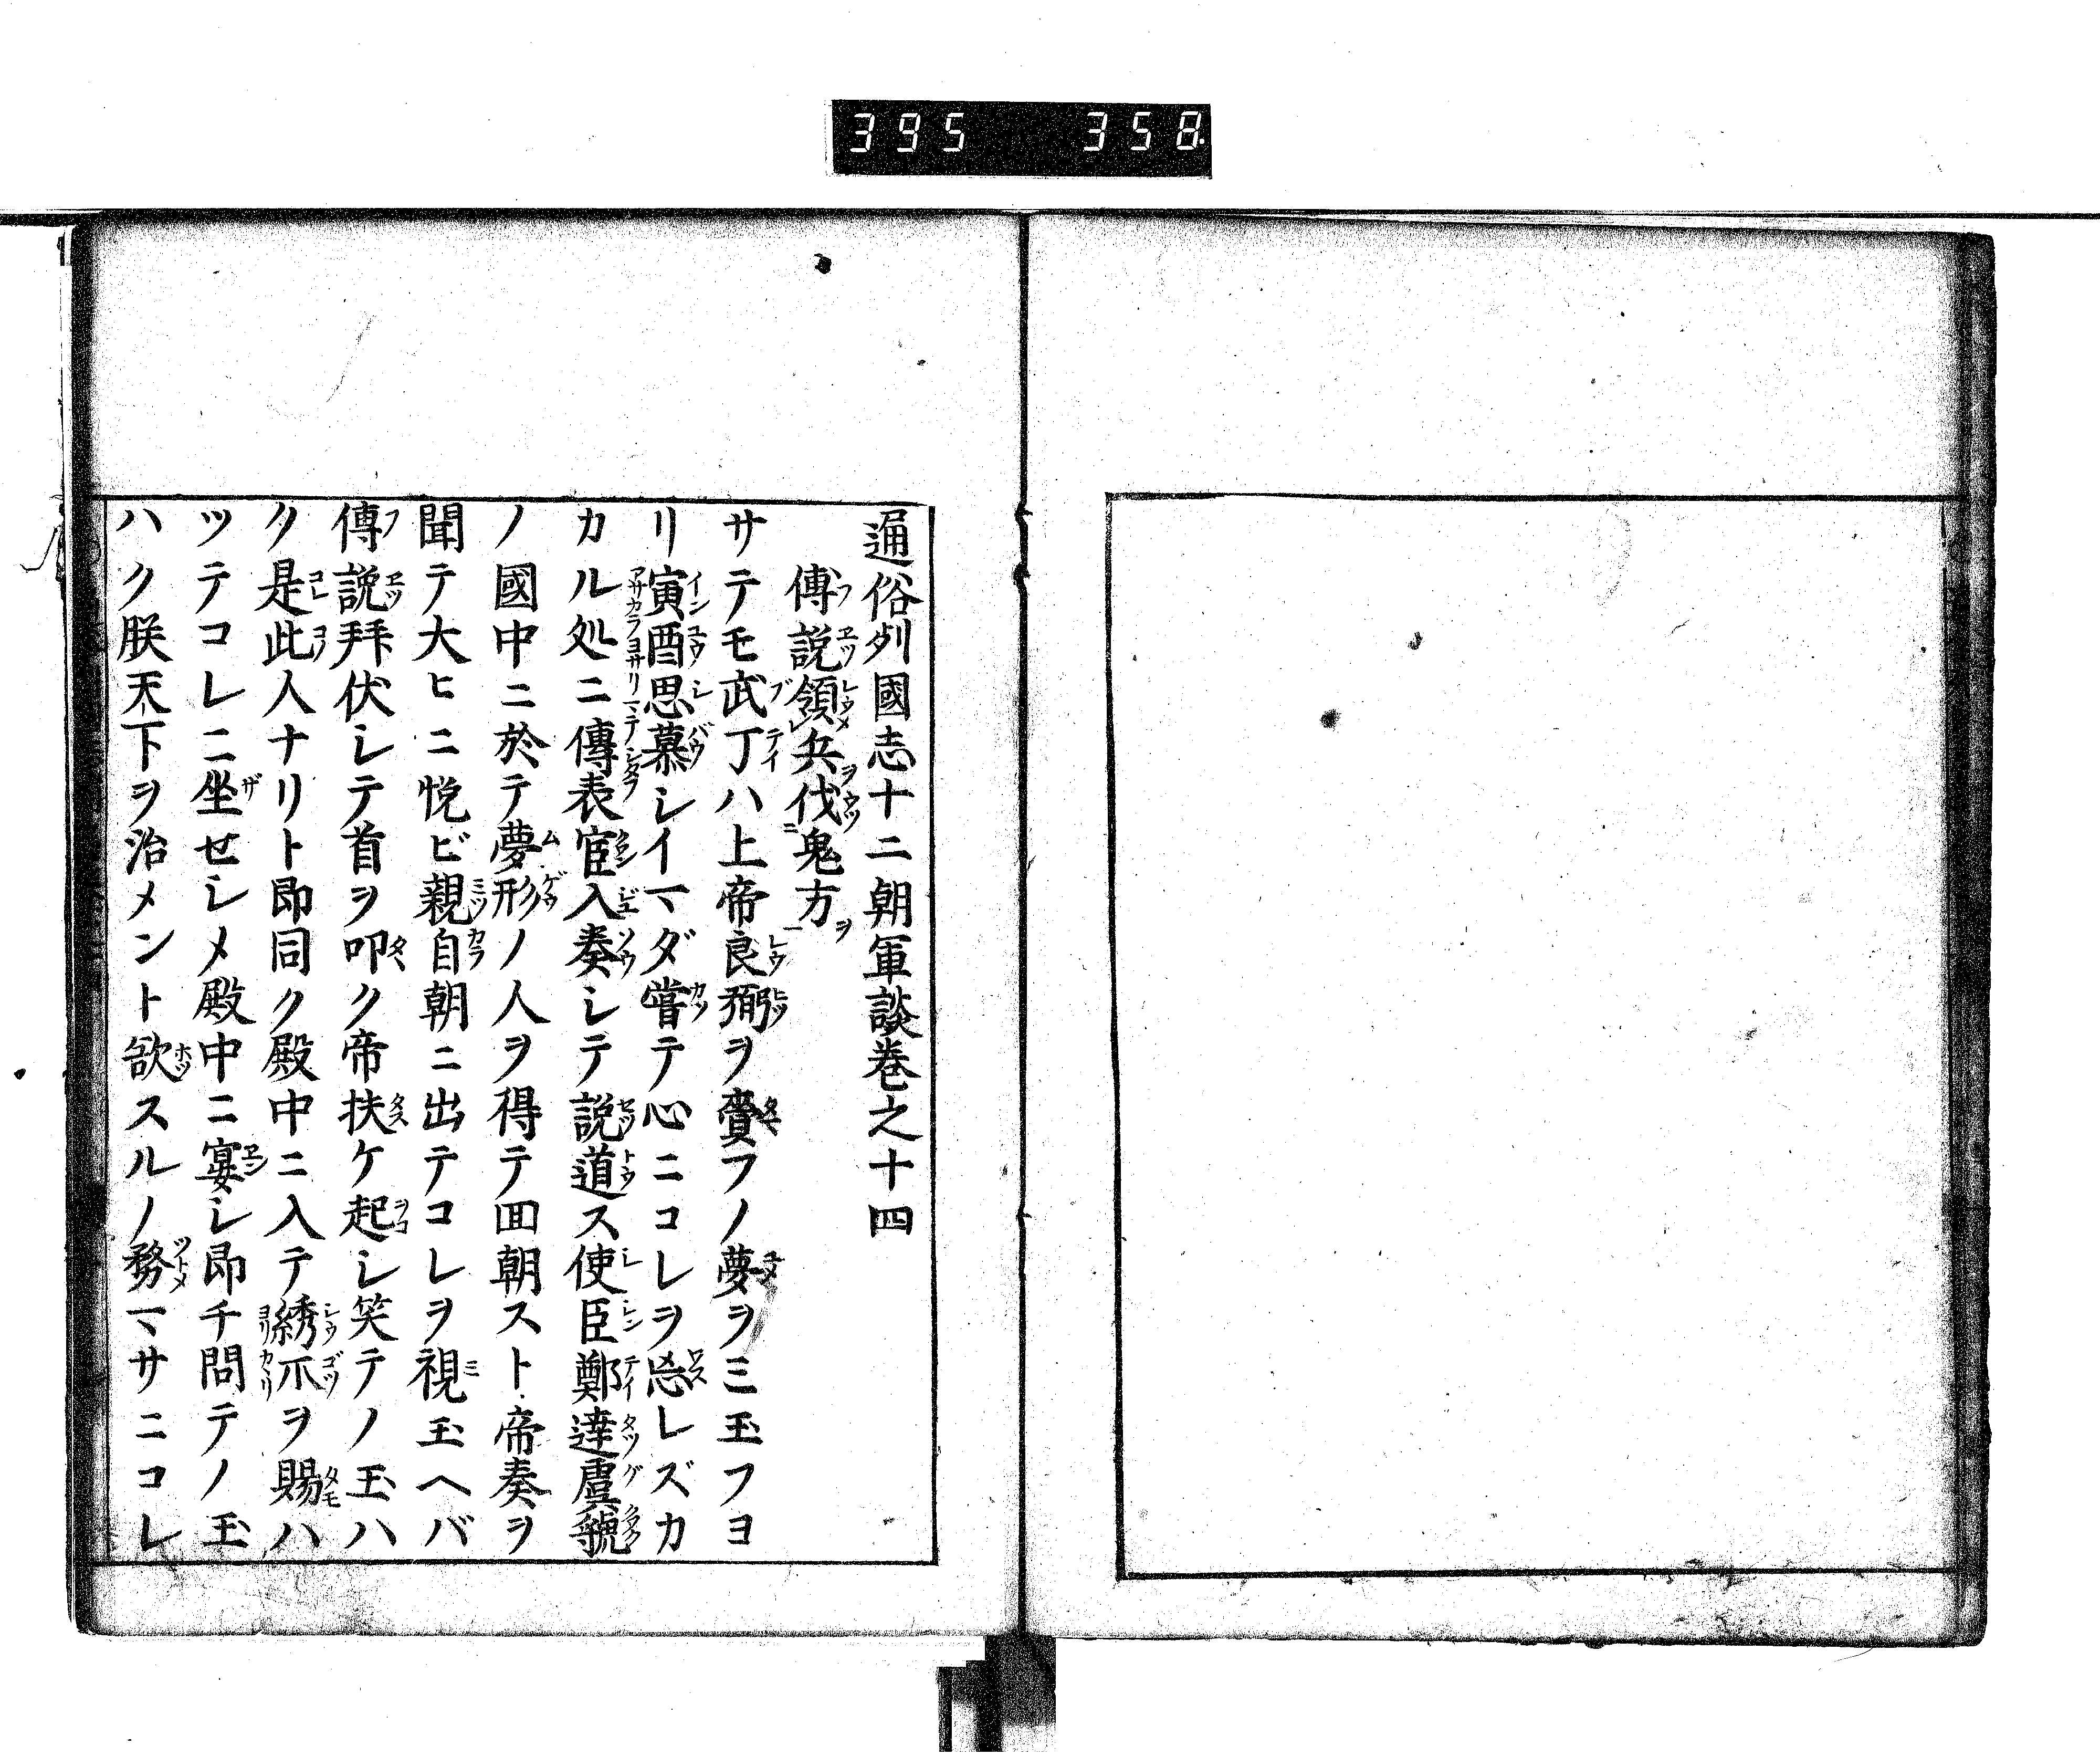 395 358
通俗列國志十二朝軍談巻之十四
傳説領兵伐鬼方
サテモ武丁ハ上帝良弼ヲ賚フノ夢ヲミ玉フヨ
リ寅酉思慕シイマダ嘗テ心ニコレヲ忘レズカ
カル処ニ傳表宦入奏シテ説道ス使臣鄭達虞虢
ノ國中ニ於テ夢形ノ人ヲ得テ回朝スト帝奏ヲ
聞テ大ヒニ悦ビ親自朝ニ出テコレヲ視玉ヘバ
傳説拜伏シテ首ヲ叩ク帝扶ケ起シ笑テノ玉ハ
ク是此人ナリト即同ク殿中ニ入テ綉兀ヲ賜ハ
ツテコレニ坐セシメ殿中ニ宴シ即チ問テノ玉
ハク朕天下ヲ治メント欲スルノ務マサニコレ